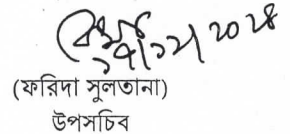 ১৭/১২/২০২৪
(ফরিদা সুলতানা)
উপসচিব